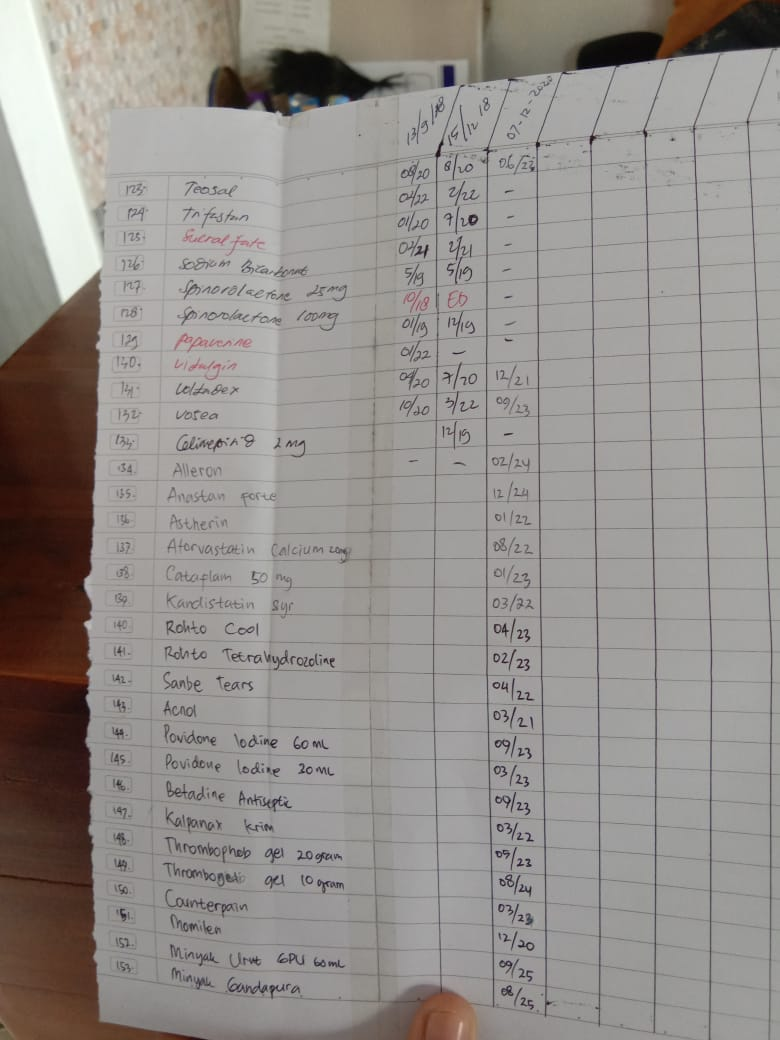 13/9/18 14/12 18 07-12-2020
123. Teosal 08/20 8/20 06/23
124. Trifastan 02/22 2/22 -
125. Sucralfate 01/20 7/20 -
126. Sodium Bicarbonat 02/21 2/21 -
127. Spinorolactone 25mg 5/19 5/19 -
128. Spinorolactone 100mg 10/18 ED -
129. Papaverine 01/19 12/19 -
130. Vidalgin 01/22 - -
131. Voltadex 04/20 7/20 12/21
132. Vosea 10/20 3/22 09/23
133. 2 mg 12/19 -
134. Alleron - - 02/24
135. Anastan forte 12/24
136. Astherin 01/22
137. Atorvastatin Calcium 20mg 08/22
138. Cataflam 50 mg 01/23
139. Kandistatin Syr 03/22
140. Rohto Cool 04/23
141. Rohto Tetrahydrozoline 02/23
142. Sanbe Tears 04/22
143. Acnol 03/21
144. Povidone Iodine 60 mL 09/23
145. Povidone Iodine 30 mL 03/23
146. Betadine Antiseptic 09/23
147. Kalpanax Krim 03/22
148. Thrombophob gel 20 gram 05/23
149. gel 10 gram 08/24
150. Counterpain 03/23
151. Momilen 12/20
152. Minyak Urut GPU 60 mL 09/25
153. Minyak Gandapura 08/25